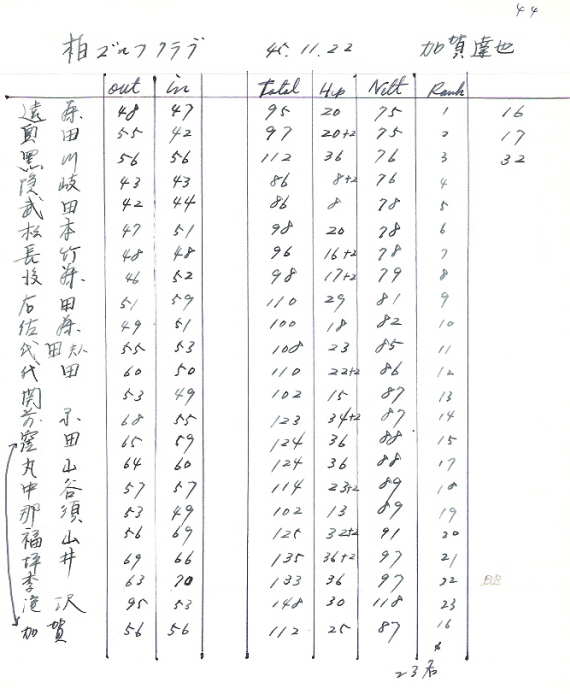 44
柏ゴルフクラブ 45.11.22 加賀達也
out in Total Hcp Nett Rank
遠藤 48 47 95 20 75 1 16
真田 55 42 97 20+2 75 2 17
黒川 56 56 112 36 76 3 32
隠岐 43 43 86 8+2 76 4
武田 42 44 86 8 78 5
松本 47 51 98 20 78 6
長竹 48 48 96 16+2 78 7
後藤 46 52 98 17+2 79 8
右田 51 59 110 29 81 9
佐藤 49 51 100 18 82 10
代田 55 53 108 23 85 11
代田 60 50 110 22+2 86 12
関 53 49 102 15 87 13
68 55 123 34+2 87 14
窪田 65 59 124 36 88 15
丸山 64 60 124 36 88 17
中谷 57 57 114 23+2 89 18
那須 53 49 102 13 89 19
福山 56 69 125 32+2 91 20
坪井 69 66 135 36+2 97 21
李 63 70 133 36 97 22 BB
滝沢 95 53 148 30 118 23
加賀 56 56 112 25 87 16
23名